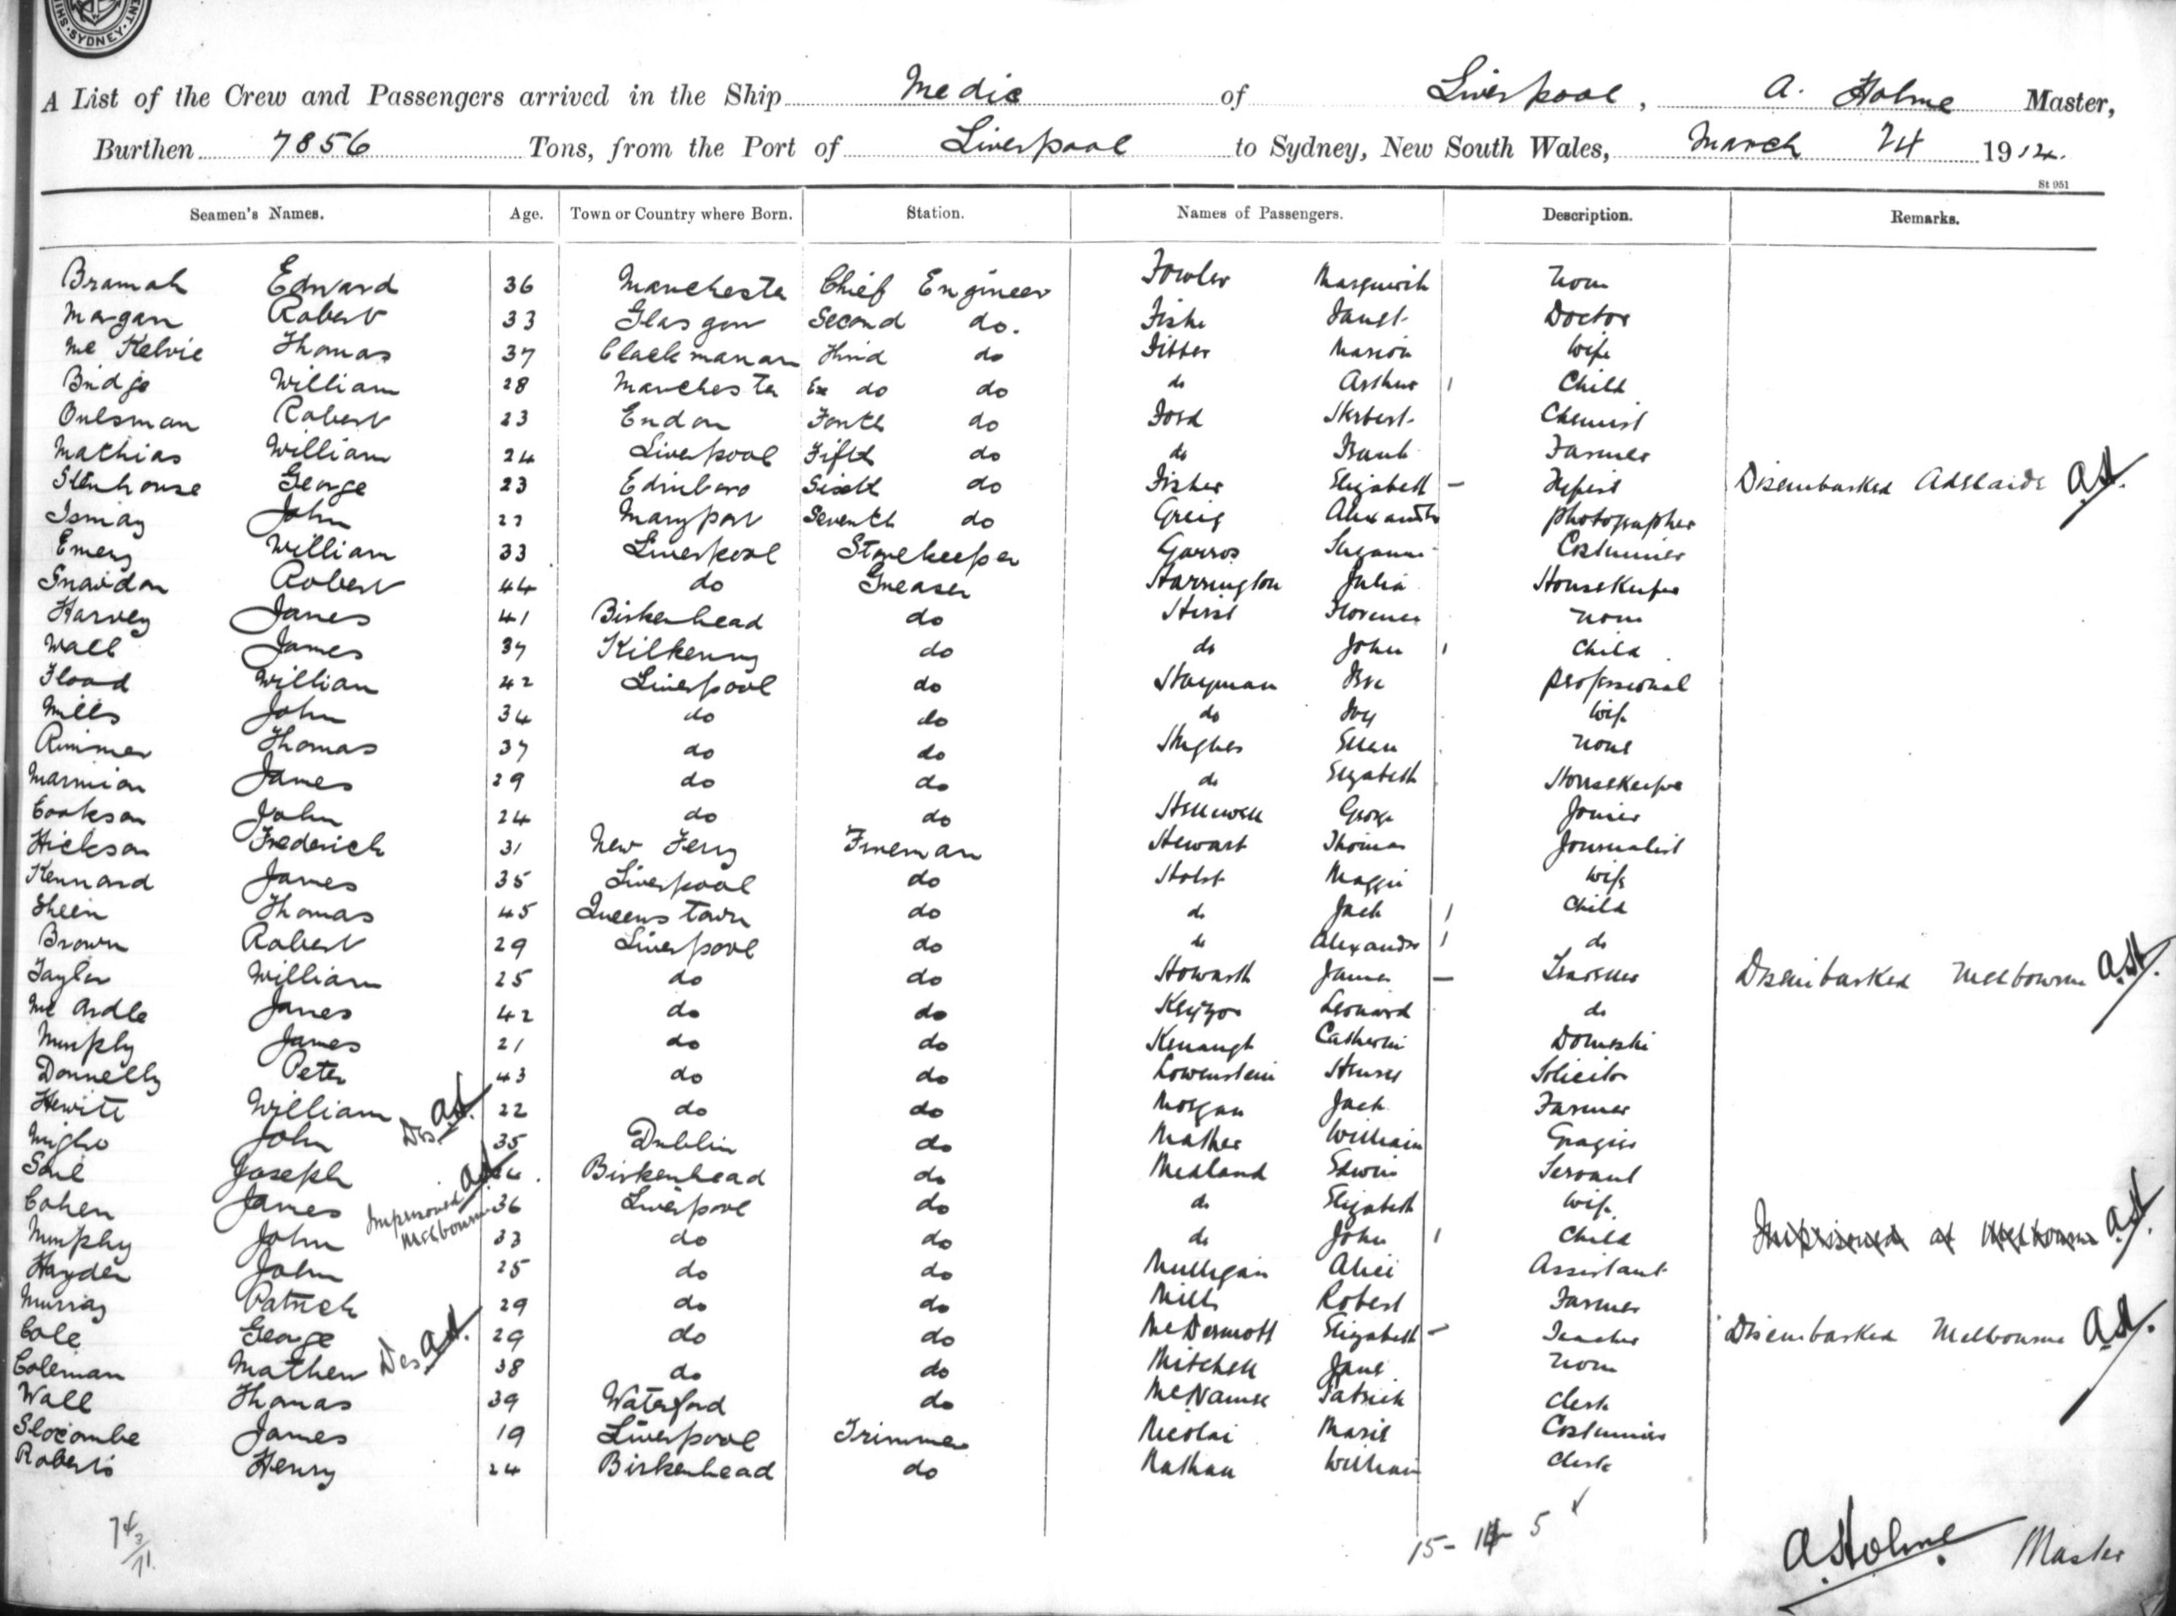 SYDNEY
A List of the Crew and Passengers arrived in the Ship Medic of Liverpool, A. Holme Master,
Burthen 7856 Tons, from the Port of Liverpool to Sydney, New South Wales, March 24 1914.
St 951
Seamen's Names. Age. Town or Country where Born. Station. Names of Passengers. Description. Remarks.
Bramah Edward 36 Manchester Chief Engineer Fowler
Morgan Robert 33 Glasgow Second do. Janet Doctor
Mc Kelvie Thomas 37 Clackmanan Third do Marion Wife
Bridge William 28 Manchester Ex do do do Arthur 1 Child
Robert 23 Endon Fourth do Ford Herbert Chemist
Mathias William 24 Liverpool Fifth do do Frank Farmer
Stenhouse George 23 Edinboro Sixth do Fisher Elizabeth – Typist Disembarked Adelaide AH.
Ismay John Maryport Seventh do Greig Alexander Photographer
Emery William 33 Liverpool Storekeeper Garros Suzanne Costumier
Snaidon Robert 44 do Greaser Harrington Julia Housekeeper
Harvey James 41 Birkenhead do Hirst Florence None
Wall James 37 Kilkenny do do John 1 Child
Flood William 42 Liverpool do Hayman Professional
Mills John 34 do do do Ivy Wife
Rimmer Thomas 37 do do Hughes Ellen None
Marmion James 29 do do do Elizabeth Housekeeper
Cookson John 24 do do George Joiner
Hickson Frederick 31 New Ferry Fireman Stewart Thomas Journalist
Kennard James 35 Liverpool do Holst Maggie Wife
Sheen Thomas 45 Queenstown do do Jack 1 Child
Brown Robert 29 Liverpool do do Alexander 1 do
Taylor William 25 do do Howarth James – Traveller Disembarked Melbourne AH.
Mc Ardle James 42 do do Leonard do
Murphy James 21 do do Catherine Domestic
Donnelly Peter 43 do do Lowenstein Henry Solicitor
Hewitt William Des AH. 22 do do Morgan Jack Farmer
John 35 Dublin do Mather William Grazier
Joseph Birkenhead do Medland Edwin Servant
Cohen James Imprisoned Melbourne AH. 36 Liverpool do do Elizabeth Wife
Murphy John 33 do do do John 1 Child Imprisoned at Melbourne AH.
Hayden John 25 do do Mulligan Alice Assistant
Murray Patrick 29 do do Mills Robert Farmer
Cole George Des AH. 29 do do McDermott Elizabeth – Teacher Disembarked Melbourne AH.
Coleman Mathew 38 do do Mitchell Jane None
Wall Thomas 39 Waterford do Patrick Clerk
Slocombe James 19 Liverpool Trimmer Nicolai Marie Costumier
Roberts Henry 24 Birkenhead do Nathan William Clerk
15 – 5
A Holme Master